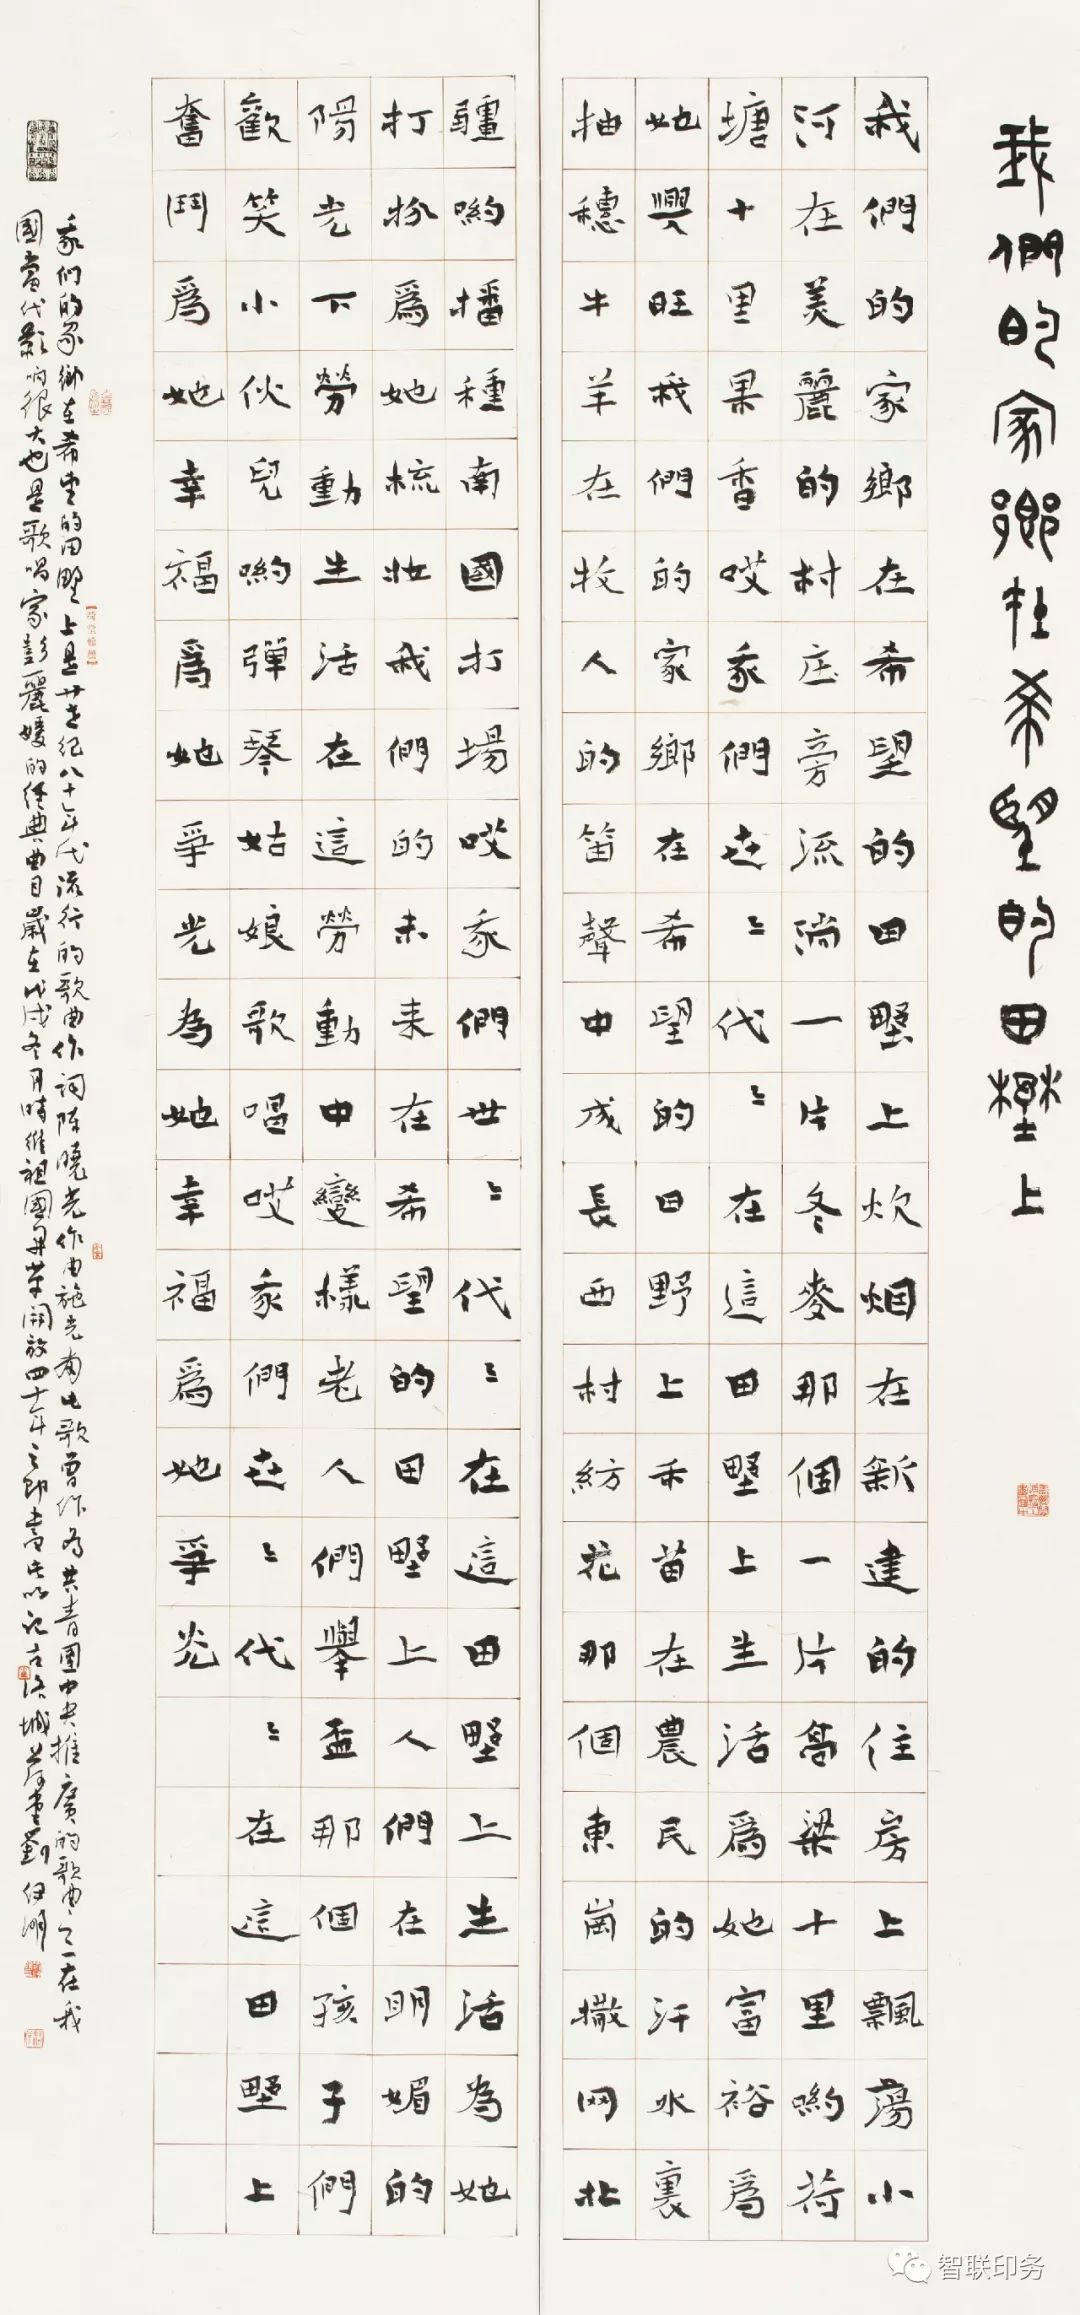 我們的家鄉在希望的田野上
我們的家鄉在希望的田野上炊烟在新建的住房上飄蕩小
河在美麗的村庄旁流淌一片冬麥那個一片高粱十里喲荷
塘十里果香哎我們世〻代〻在這田野上生活爲她富裕爲
她興旺我們的家鄉在希望的田野上禾苗在農民的汗水裏
抽穗牛羊在牧人的笛聲中成長西村紡花那個東崗撒网北
疆喲播種南國打場哎我們世〻代〻在這田野上生活為她
打扮爲她梳妝我們的未来在希望的田野上人們在明媚的
陽光下勞動生活在這勞動中變樣老人們舉盃那個孩子們
歡笑小伙兒喲彈琴姑娘歌唱哎我們世〻代〻在這田野上
奮鬥爲她幸福爲她爭光為她幸福爲她爭光
我们的家鄉在希望的田野上是廿世纪八十年代流行的歌曲作词陈曉光作曲施光南此歌曾作为共青團中央推廣的歌曲之一在我
國當代影响很大也是歌唱家彭麗媛的经典曲目歲在戊戌冬月時維祖國改革開放四十年之即書此以记古洛城劉
智联印务